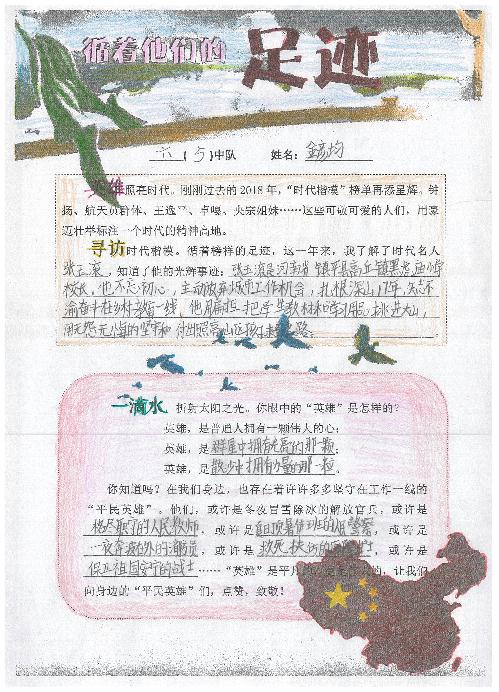 循着他们的
足迹
六（5）中队 姓名：金彦均
英雄照亮时代。刚刚过去的2018年，“时代楷模”榜单再添星辉。钟
扬、航天员群体、王逸平、卓嘎、央宗姐妹……这些可敬可爱的人们，用豪
迈壮举标注一个时代的精神高地。
寻访时代楷模。循着榜样的足迹，这一年来，我了解了时代名人
张玉滚，知道了他的光辉事迹：张玉滚是河南省镇平县高丘镇黑虎庙小学
校长，他不忘初心，主动放弃城市工作机会，扎根深山17年，矢志不
渝奋斗在乡村教育一线，他用扁担把学生教材和学习用品挑进大山，
用无怨无悔的坚守和付出照亮山区孩子
一滴水，折射太阳之光。你眼中的“英雄”是怎样的？
英雄，是普通人拥有一颗伟人的心；
英雄，是群星中拥有光亮的那一颗；
英雄，是散沙中拥有力量的那一颗。
你知道吗？在我们身边，也存在着许许多多坚守在工作一线的
“平民英雄”。他们，或许是冬夜冒雪除冰的解放官兵，或许是
恪尽职守的人民教师，或许是
一夜奔波在外的消防员，或许是救死扶伤的，或许是
保卫祖国安宁的战士……“英雄”是平凡的，让我们
向身边的“平民英雄”们，点赞，致敬！